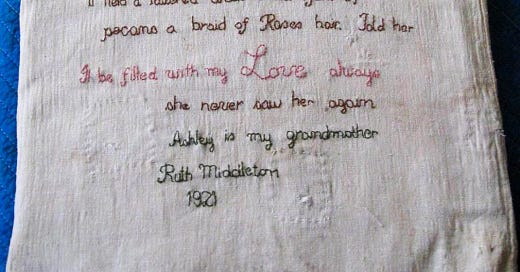 It had a tattered
pecans a braid of Roses hair. Told her
It be filled with my Love always
she never saw her again
Ashley is my grandmother
Ruth Middleton
1921